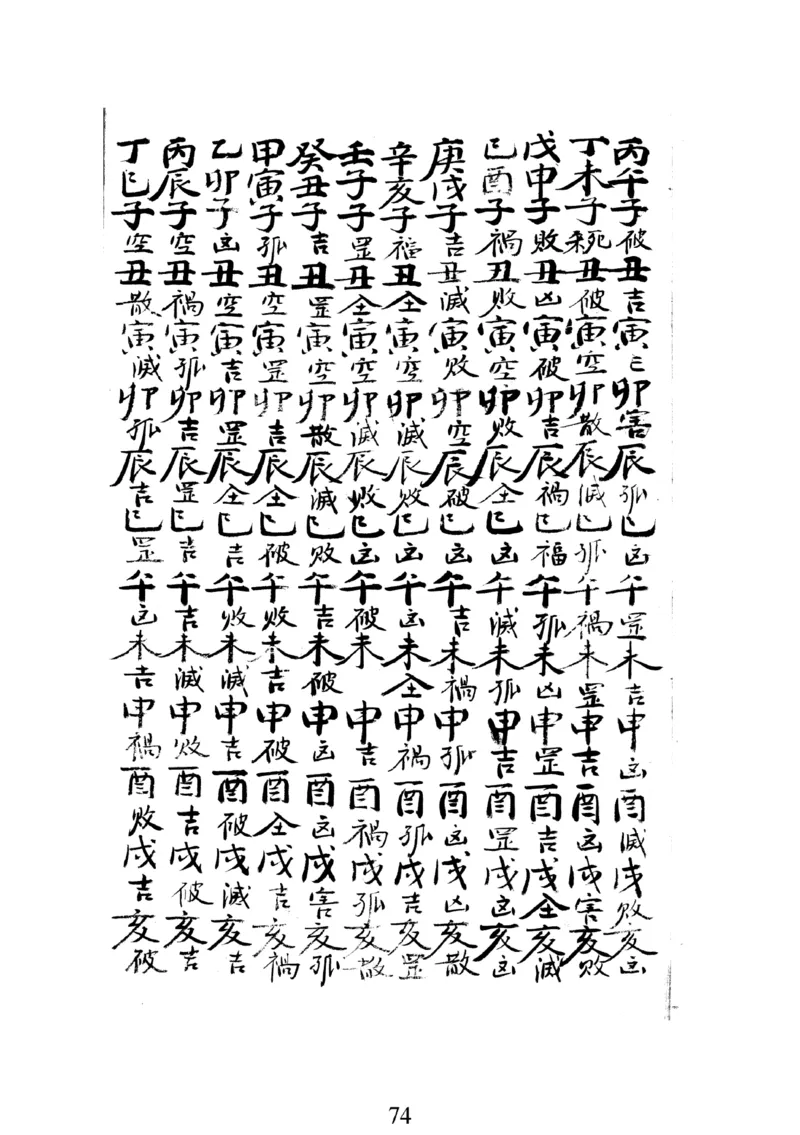 丙午子破丑吉寅亡卯害辰孤巳凶午罡未吉申凶酉滅戌敗亥凶
丁未子死丑破寅空卯散辰滅巳孤午禍未罡申吉酉凶戌害亥敗
戊申子敗丑凶寅破卯吉辰禍巳福午孤未凶申罡酉吉戌仝亥滅
己酉子禍丑敗寅空卯敗辰仝巳凶午滅未孤申吉酉罡戌凶亥凶
庚戌子吉丑滅寅敗卯空辰破巳凶午吉未禍申孤酉凶戌凶亥散
辛亥子福丑仝寅空卯滅辰敗巳凶午凶未仝申禍酉孤戌吉亥罡
壬子子罡丑仝寅空卯滅辰敗巳凶午破未申吉酉禍戌孤亥散
癸丑子吉丑罡寅空卯散辰滅巳敗午吉未破申凶酉凶戌害亥孤
甲寅子孤丑空寅罡卯吉辰仝巳破午敗未吉申破酉仝戌吉亥禍
乙卯子凶丑空寅吉卯罡辰仝巳吉午敗未滅申吉酉破戌滅亥吉
丙辰子空丑禍寅孤卯吉辰罡巳吉午吉未滅申敗酉吉戌破亥吉
丁巳子空丑散寅滅卯孤辰吉巳罡午凶未吉申禍酉敗戌吉亥破
74